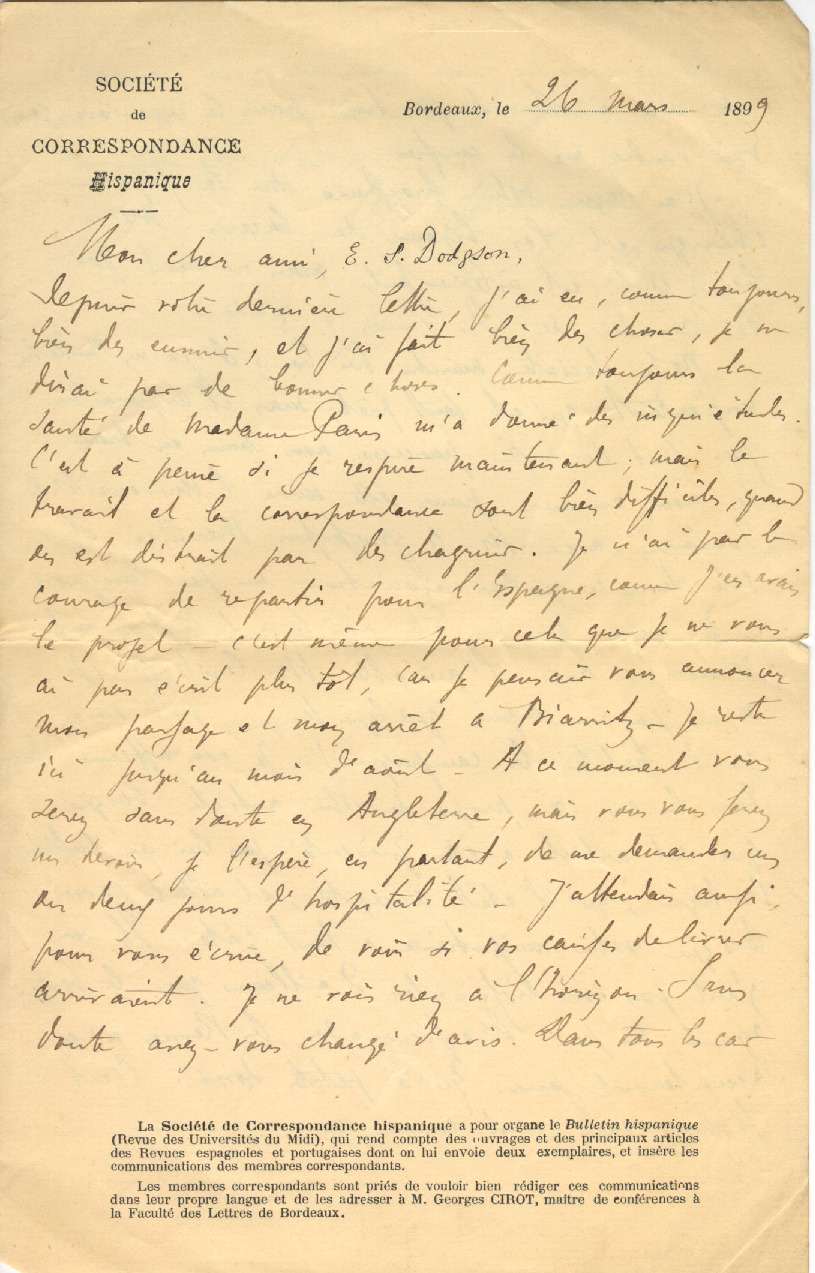 SOCIÉTÉ
de
CORRESPONDANCE
Hispanique
Bordeaux, le 26 mars 1899
Mon cher ami, E. S. Dodgson,
Depuis votre dernière lettre, j'ai eu, comme toujours,
bien des ennuis, et j'ai fait bien des choses, je ne
dirai pas de bonnes choses. Comme toujours la
santé de Madame Paris m'a donné des inquiétudes.
C'est à peine si je respire maintenant ; mais le
travail et la correspondance sont bien difficiles, quand
on est distrait par des chagrins. Je n'ai pas le
courage de repartir pour l'Espagne, comme j'en avais
le projet – c'est même pour cela que je ne vous
ai pas écrit plus tôt, car je pensais vous annoncer
mon passage et mon arrêt à Biarritz – Je reste
ici jusqu'au mois d'août – A ce moment vous
serez sans doute en Angleterre, mais vous vous ferez
un devoir, je l'espère, en partant, de me demander un
ou deux jours d'hospitalité – J'attendais aussi,
pour vous écrire, de voir si vos caisses de livres
arrivaient. Je ne vois rien à l'horizon. Sans
doute avez-vous changé d'avis. Dans tous les cas
La Société de Correspondance hispanique a pour organe le Bulletin hispanique
(Revue des Universités du Midi), qui rend compte des ouvrages et des principaux articles
des Revues espagnoles et portugaises dont on lui envoie deux exemplaires, et insère les
communications des membres correspondants.
Les membres correspondants sont priés de vouloir bien rédiger ces communications
dans leur propre langue et de les adresser à M. Georges CIROT, maître de conférences à
la Faculté des Lettres de Bordeaux.